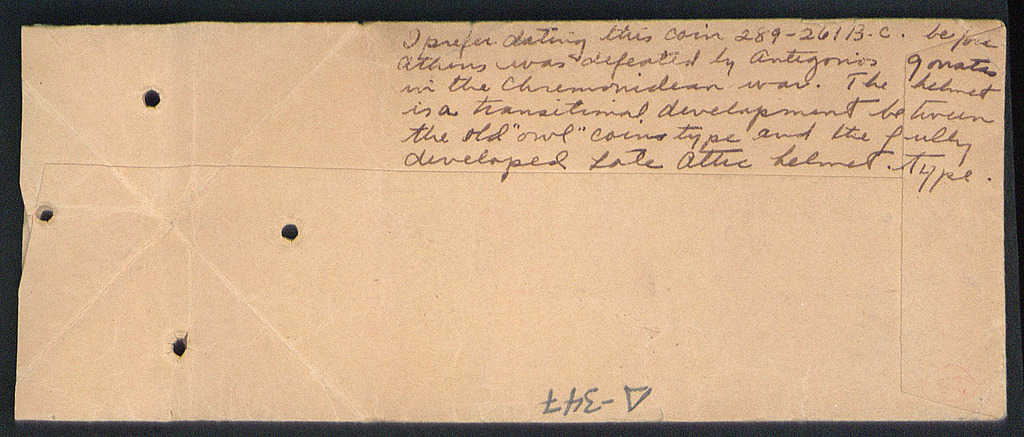 I prefer dating this coin 289-261 B.C. before
Athens was defeated by Antigonos Gonatas
in the Chremonidean war. The helmet
is a transitional development between
the old "owl" coins type and the fully
developed Late Attic helmet type.
Δ-347